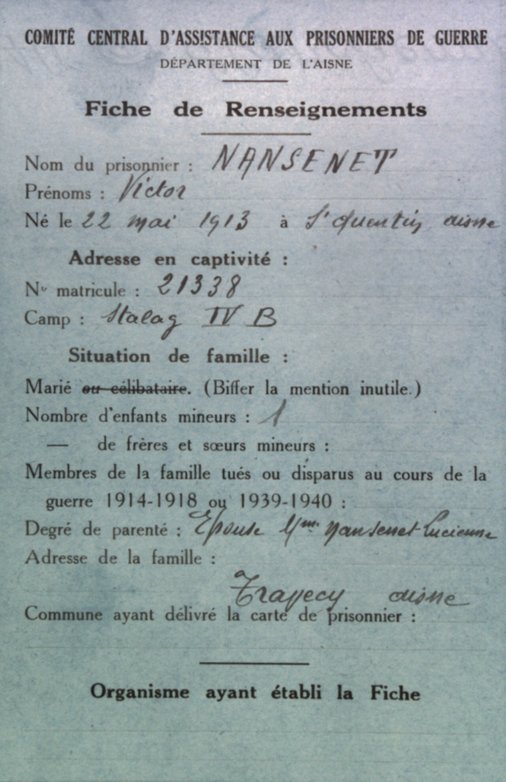 COMITÉ CENTRAL D'ASSISTANCE AUX PRISONNIERS DE GUERRE
DÉPARTEMENT DE L'AISNE
Fiche de Renseignements
Nom du prisonnier : NANSENET
Prénoms : Victor
Né le 22 mai 1913 à St Quentin aisne
Adresse en captivité :
No matricule : 21338
Camp : Stalag IV B
Situation de famille :
Marié ou célibataire. (Biffer la mention inutile.)
Nombre d'enfants mineurs : 1
— de frères et sœurs mineurs :
Membres de la famille tués ou disparus au cours de la
guerre 1914-1918 ou 1939-1940 :
Degré de parenté : Epouse Mme Nansenet Lucienne
Adresse de la famille :
Travecy aisne
Commune ayant délivré la carte de prisonnier :
Organisme ayant établi la Fiche